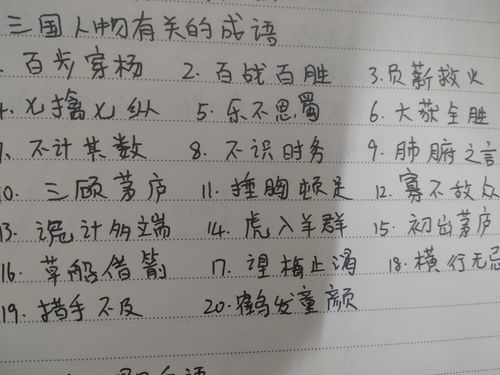 三国人物有关的成语
百步穿杨 2. 百战百胜 3. 负薪救火
4. 七擒七纵 5. 乐不思蜀 6. 大获全胜
7. 不计其数 8. 不识时务 9. 肺腑之言
10. 三顾茅庐 11. 捶胸顿足 12. 寡不敌众
13. 诡计多端 14. 虎入羊群 15. 初出茅庐
16. 草船借箭 17. 望梅止渴 18. 横行无忌
19. 措手不及 20. 鹤发童颜